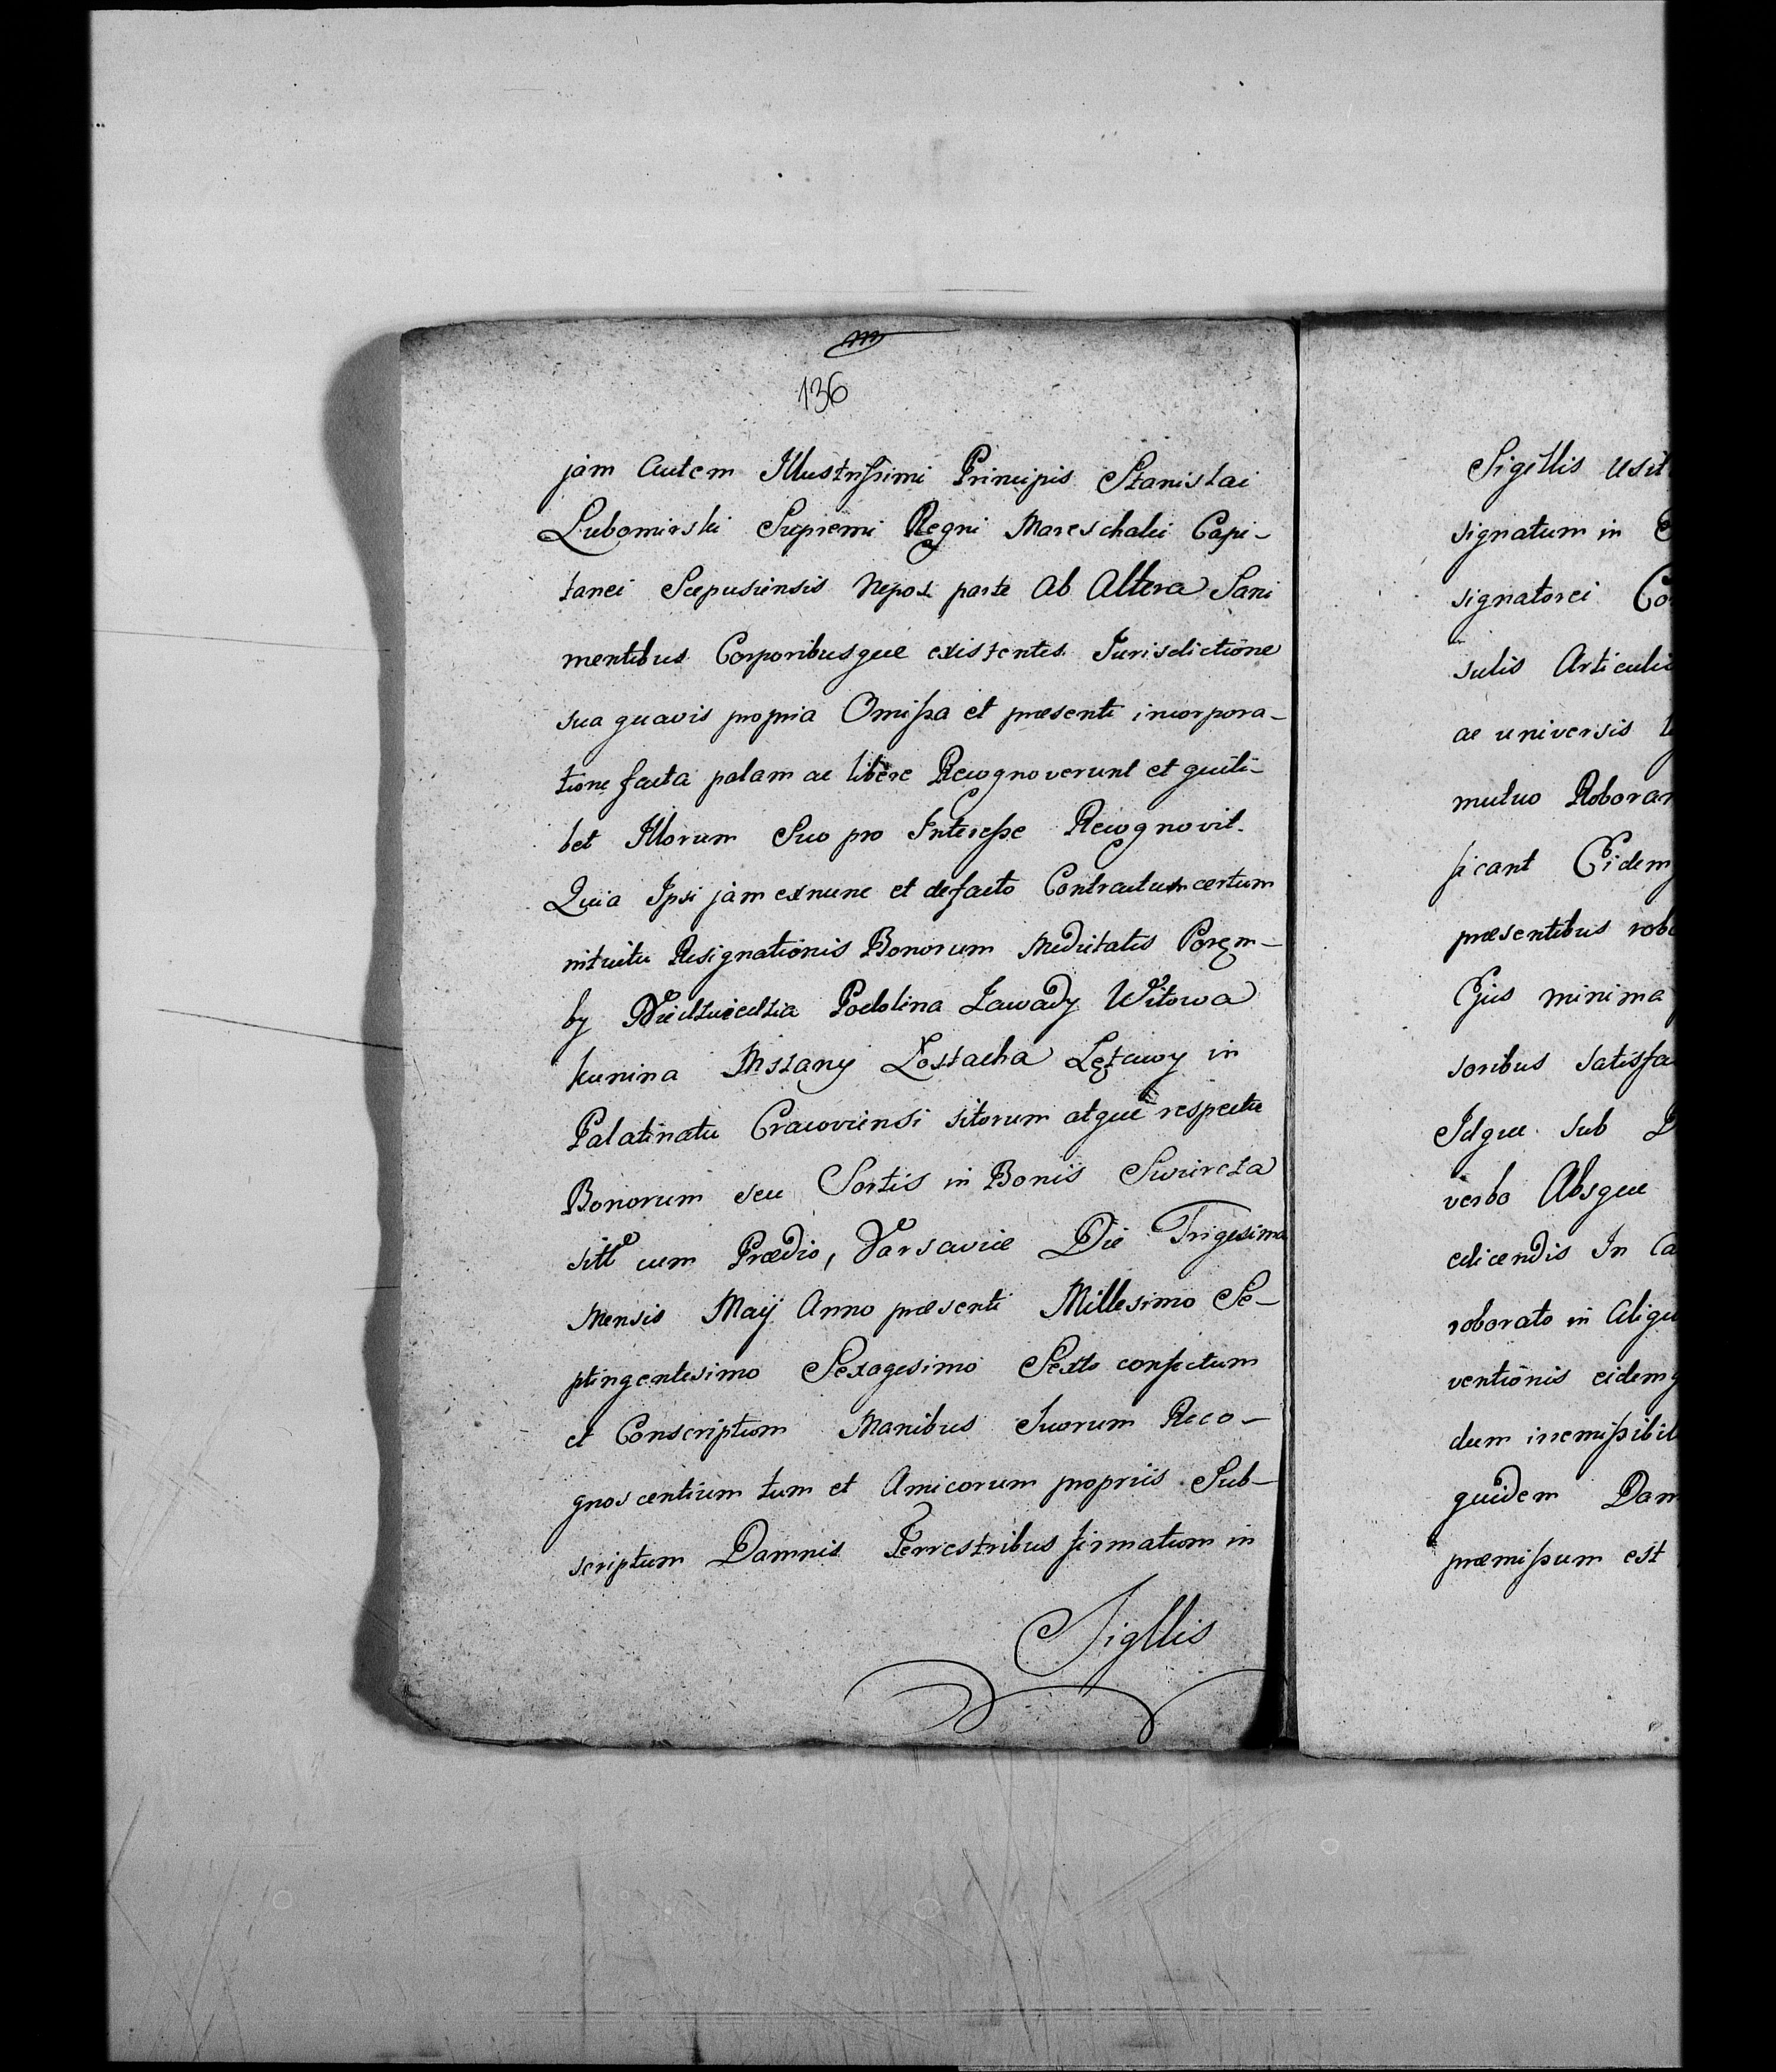 136
jam autem Illustrissimi Principis Stanislai
Lubomirski Supremi Regni Mareschalci Capi-
tanei Scepusiensis Nepos parte ab Altera Sani
mentibus Corporibusque existentes Jurisdictione
sua quavis propria Omissa et præsenti incorpora-
tione facta palam ac libere Recognoverunt et quili-
bet Illorum Suo pro Interesse Recognovit.
Quia Ipsi jam exnunc et defacto Contractum certum
intuitu Resignationis Bonorum Medietatis Poręm-
by Niedzwiedzia Podolina Zawady Witowa
kunina Mszany Łostacha Lętowy in
Palatinatu Cracoviensi sitorum atque respectu
Bonorum seu Sortis in Bonis Swircza
sitt cum Prædio, Varsaviæ Die Trigesima
Mensis Maij Anno præsenti Millesimo Se-
ptingentesimo Sexagesimo Sexto confectum
et Conscriptum Manibus Suorum Reco-
gnoscentium tum et Amicorum propriis Sub-
scriptum Damnis Terrestribus firmatum in
Sigllis
Sigillis Usit
signatum in
signatorei Co
sulis Articulis
ac universis
mutuo Roboran
ficant Eidem
præsentibus robo
Ejus minima
soribus satisfa
Idque sub
verbo Absque
edicendis In Ca
roborato in Aliqu
ventionis eidemq
dum irremissibil
quidem Dam
præmissum est